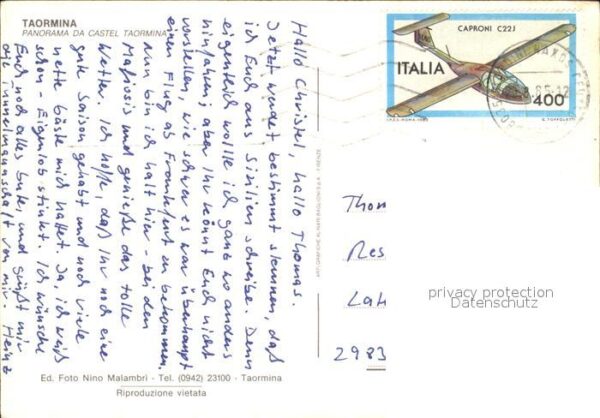 TAORMINA
PANORAMA DA CASTEL TAORMINA
Hallo Christel, hallo Thomas.
Jetzt werdet bestimmt staunen, daß
ich Euch aus Sizilien schreibe. Denn
eigentlich wollte ich ganz wo anders
hinfahren; aber Ihr könnt Euch nicht
vorstellen, wie schwer es war überhaupt
einen Flug ab Frankfurt zu bekommen.
Nun bin ich halt hier - bei den
Mafiosis und genieße das tolle
Wetter. Ich hoffe, daß Ihr noch eine
gute Saison gehabt und noch viele
nette Gäste mich hattet. Ja, ich weiß
schon - Eigenlob stinkt. Ich wünsche
Euch noch alles Gute, und grüßt mir
die Tunnelmannschaft von mir. Heinz
Ed. Foto Nino Malambrì - Tel. (0942) 23100 - Taormina
Riproduzione vietata
CAPRONI C22J
ITALIA
400
Thom
Res
Lah
2983
privacy protection
Datenschutz